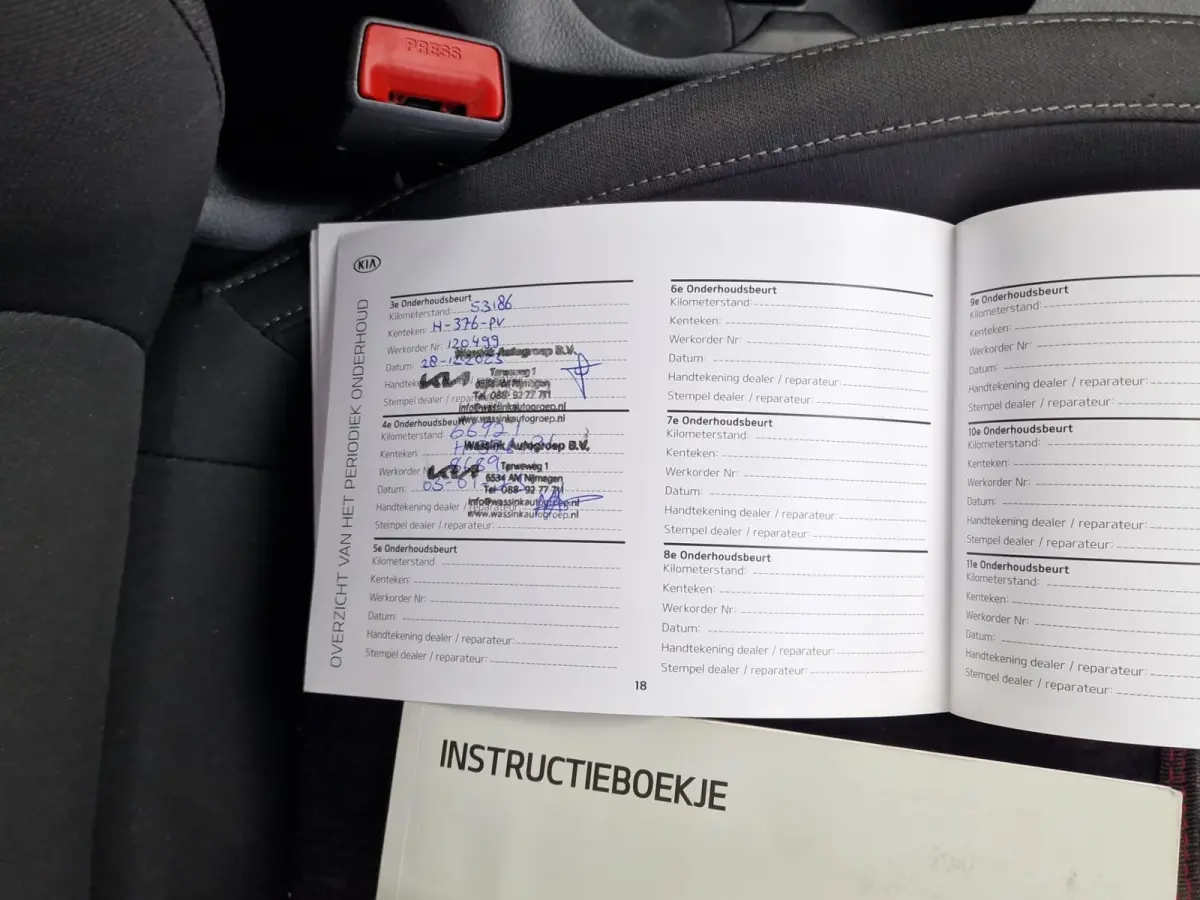 PRESS
KIA
OVERZICHT VAN HET PERIODIEK ONDERHOUD
3e Onderhoudsbeurt
Kilometerstand 53186
Kenteken: H-376-PV
Werkorder Nr: 120499
Datum: 28-12-2023
Wassink Autogroep B.V.
KIA
Terweweg 1
6534 AM Nijmegen
Tel 088- 92 77 711
info@wassinkautogroep.nl
www.wassinkautogroep.nl
Stempel dealer /
4e Onderhoudsbeurt
Kilometerstand 66921
Kenteken:
Wassink Autogroep B.V.
Werkorder
KIA
Terweweg 1
6534 AM Nijmegen
Tel 088- 92 77 711
Datum: 05-01-
info@wassinkautogroep.nl
www.wassinkautogroep.nl
Handtekening dealer / reparateur:
Stempel dealer / reparateur:
5e Onderhoudsbeurt
Kilometerstand:
Kenteken:
Werkorder Nr:
Datum:
Handtekening dealer / reparateur:
Stempel dealer / reparateur:
6e Onderhoudsbeurt
Kilometerstand:
Kenteken:
Werkorder Nr:
Datum:
Handtekening dealer / reparateur:
Stempel dealer / reparateur:
7e Onderhoudsbeurt
Kilometerstand:
Kenteken:
Werkorder Nr:
Datum:
Handtekening dealer / reparateur:
Stempel dealer / reparateur:
8e Onderhoudsbeurt
Kilometerstand:
Kenteken:
Werkorder Nr:
Datum:
Handtekening dealer / reparateur:
Stempel dealer / reparateur:
18
9e Onderhoudsbeurt
Kilometerstand:
Kenteken:
Werkorder Nr:
Datum:
Handtekening dealer / reparateur:
Stempel dealer / reparateur:
10e Onderhoudsbeurt
Kilometerstand:
Kenteken:
Werkorder Nr:
Datum:
Handtekening dealer / reparateur:
Stempel dealer / reparateur:
11e Onderhoudsbeurt
Kilometerstand:
Kenteken:
Werkorder Nr:
Datum:
Handtekening dealer / reparateur:
Stempel dealer / reparateur:
INSTRUCTIEBOEKJE